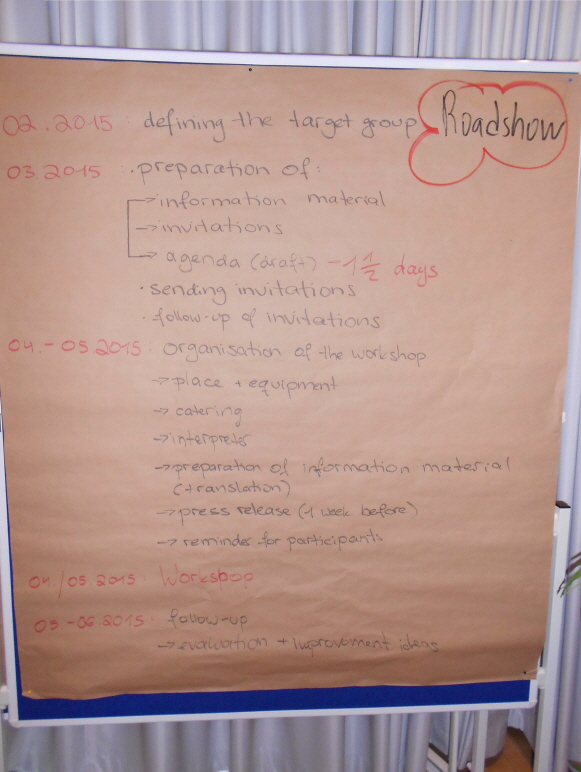 Roadshow
02.2015: defining the target group
03.2015: • preparation of:
→ information material
→ invitations
→ agenda (draft) - 1 1/2 days
• sending invitations
• follow-up of invitations
04.-05.2015: organisation of the workshop
→ place + equipment
→ catering
→ interpreter
→ preparation of information material
(+translation)
→ press release (~1 week before)
→ reminder for participants
04./05 2015: Workshop
05.-06.2015: follow-up
→ evaluation + improvement ideas